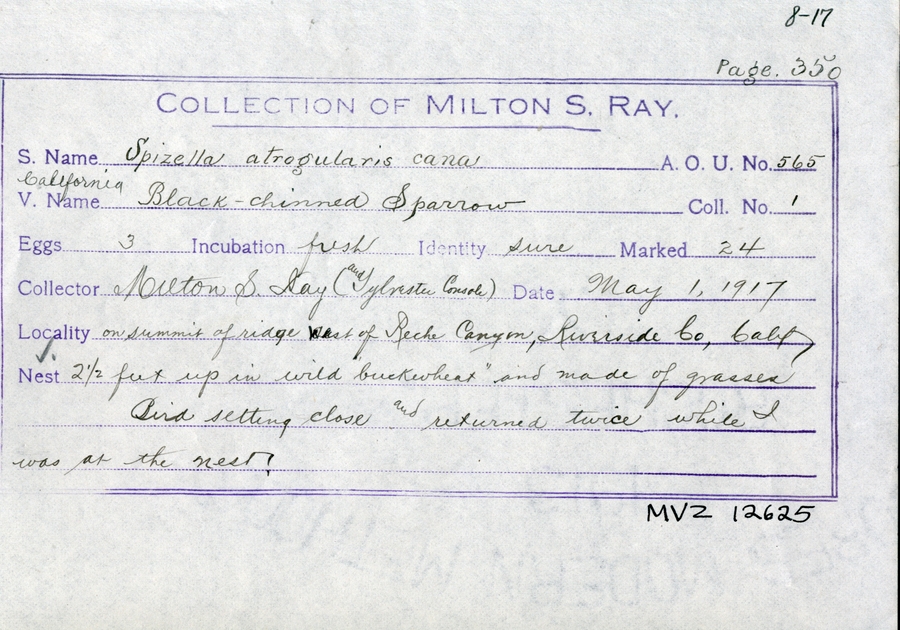 8-17
Page. 350
COLLECTION OF MILTON S. RAY.
S. Name Spizella atrogularis cana A. O. U. No. 565
California
V. Name Black-chinned Sparrow Coll. No. 1
Eggs 3 Incubation fresh Identity sure Marked 24
Collector Milton S. Ray (and Sylvester Console) Date May 1, 1917
Locality on summit of ridge west of Reche Canyon, Riverside Co, Calif
Nest 2 1/2 feet up in wild buckwheat" and made of grasses
Bird setting close and returned twice while I
was at the nest!
MVZ 12625